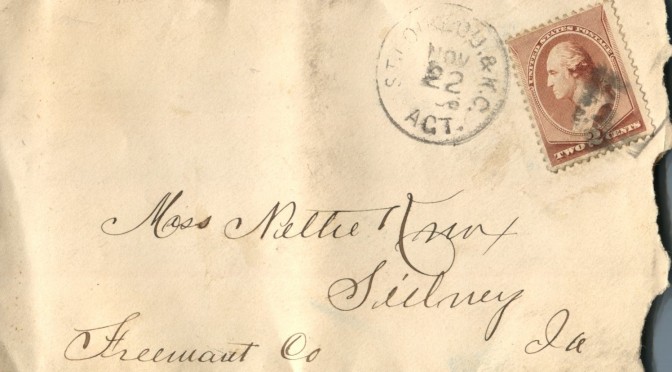 NOV
22
AGT.
UNITED STATES POSTAGE
TWO 2 CENTS
Miss Nettie Knox
Sidney
Freemont Co Ia